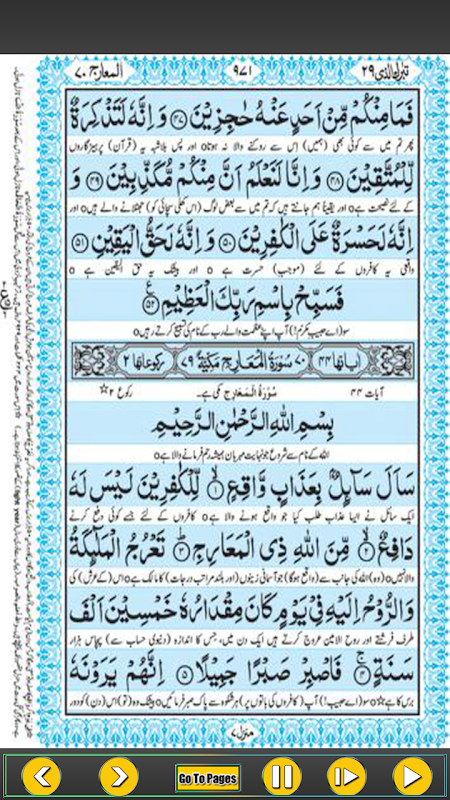 تبرك الذى ٢٩ ٩٧١ المعارج ٧٠
فَمَا مِنْكُمْ مِّنْ اَحَدٍ عَنْهُ حٰجِزِيْنَ ﴿٤٧﴾ وَ اِنَّهٗ لَتَذْكِرَةٌ
پھر تم میں سے کوئی بھی (ہمیں) اس سے روکنے والا نہ ہوتا o اور پس بلاشبہ یہ (قرآن) پرہیزگاروں
لِّلْمُتَّقِيْنَ ﴿٤٨﴾ وَ اِنَّا لَنَعْلَمُ اَنَّ مِنْكُمْ مُّكَذِّبِيْنَ ﴿٤٩﴾ وَ
کے لئے نصیحت ہے o اور یقینا ہم جانتے ہیں کہ تم میں سے بعض لوگ (اس کھلی سچائی کو) جھٹلانے والے ہیں o اور
اِنَّهٗ لَحَسْرَةٌ عَلَى الْكٰفِرِيْنَ ﴿٥٠﴾ وَ اِنَّهٗ لَحَقُّ الْيَقِيْنِ ﴿٥١﴾
واقعی یہ کافروں کے لئے (موجب) حسرت ہے o اور بیشک یہ حق الیقین ہے o
فَسَبِّحْ بِاسْمِ رَبِّكَ الْعَظِيْمِ ﴿٥٢﴾ ع
سو (اے حبیبِ مکرّم!) آپ اپنے عظمت والے رب کے نام کی تسبیح کرتے رہیں o
اٰیاتها ٤٤ ٧٠ سُوْرَةُ الْمَعَارِجِ مَكِّيَّةٌ ٧٩ ركوعاتها ٢
آیات ۴۴ سُوْرَةُ الْمَعَارِج مکی ہے۔ رکوع ۲
بِسْمِ اللّٰهِ الرَّحْمٰنِ الرَّحِيْمِ
اللہ کے نام سے شروع جو نہایت مہربان ہمیشہ رحم فرمانے والا ہے o
سَاَلَ سَآىِٕلٌۢ بِعَذَابٍ وَّاقِعٍ ﴿١﴾ لِّلْكٰفِرِيْنَ لَيْسَ لَهٗ
ایک سائل نے ایسا عذاب طلب کیا جو واقع ہونے والا ہے o کافروں کے لئے جسے کوئی دفع کرنے
دَافِعٌ ﴿٢﴾ مِّنَ اللّٰهِ ذِى الْمَعَارِجِ ﴿٣﴾ تَعْرُجُ الْمَلٰٓىِٕكَةُ
والا نہیں o (وہ) اللہ کی جانب سے (واقع ہوگا) جو آسمانی زینوں (اور بلند مراتب درجات) کا مالک ہے o اس (کے عرش) کی
وَ الرُّوْحُ اِلَيْهِ فِيْ يَوْمٍ كَانَ مِقْدَارُهٗ خَمْسِيْنَ اَلْفَ
طرف فرشتے اور روح الامین عروج کرتے ہیں ایک دن میں، جس کا اندازہ (دنیوی حساب سے) پچاس ہزار
سَنَةٍ ﴿٤﴾ فَاصْبِرْ صَبْرًا جَمِيْلًا ﴿٥﴾ اِنَّهُمْ يَرَوْنَهٗ
برس کا ہے o سو (اے حبیب!) آپ (کافروں کی باتوں پر) ہر شکوہ سے پاک صبر فرمائیں o بیشک وہ (تو) اس (دن) کو دور
منزل ٧
Go To Pages